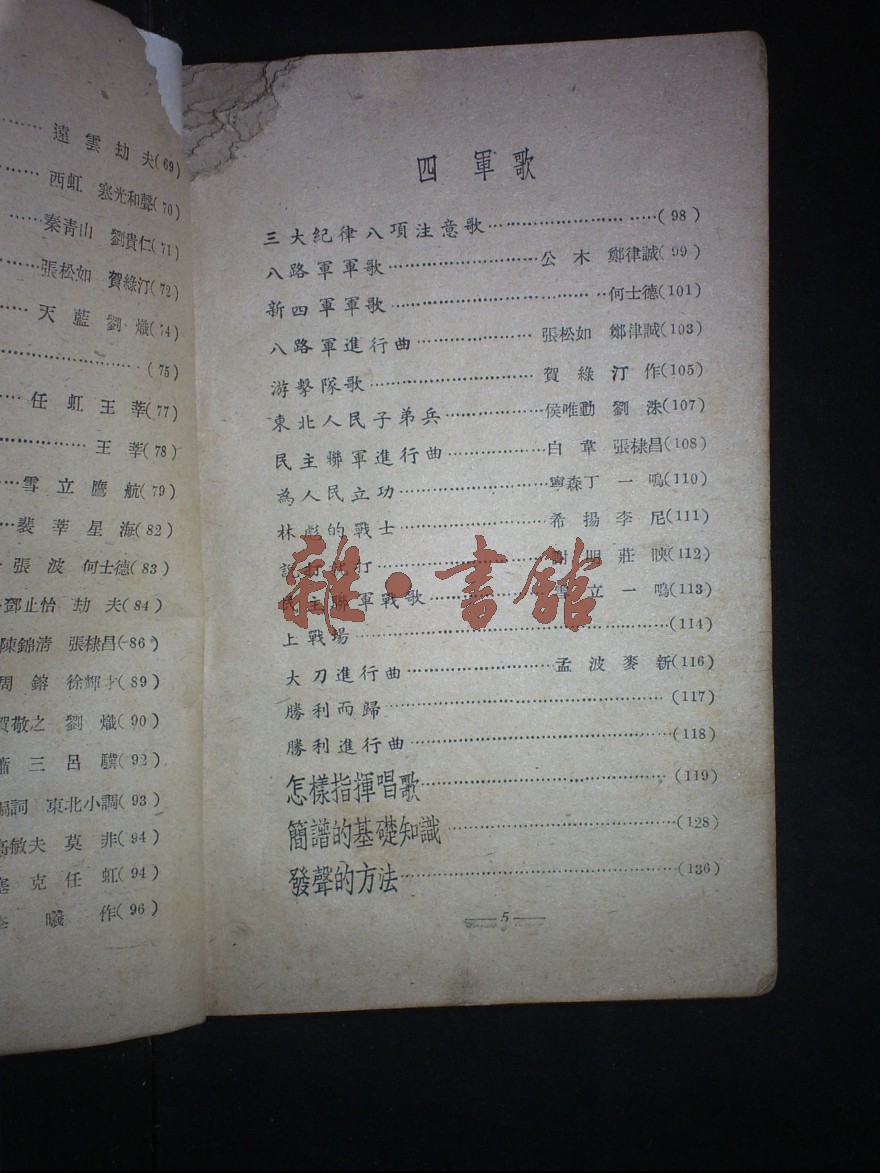 遠雲劫夫(69)
西虹 寒光和聲(70)
秦青山 劉貴仁(71)
張松如 賀綠汀(72)
天藍 劉熾(74)
(75)
任虹 王莘(77)
王莘(78)
雪立鷹航(79)
裴莘星海(82)
張波 何士德(83)
鄧止怡 劫夫(84)
陳錦清 張棣昌(86)
周鎔 徐輝才(89)
賀敬之 劉熾(90)
蕭三 呂驥(92)
編詞 東北小調(93)
高敏夫 莫非(94)
塞克 任虹(94)
李曦 作(96)
四 軍歌
三大紀律八項注意歌……(98)
八路軍軍歌……公木 鄭律誠(99)
新四軍軍歌……何士德(101)
八路軍進行曲……張松如 鄭津誠(103)
游擊隊歌……賀綠汀作(105)
東北人民子弟兵……侯唯動 劉洙(107)
民主聯軍進行曲……白韋 張棣昌(108)
為人民立功……寧森丁一鳴(110)
林彪的戰士……希揚李尼(111)
說打就打……明莊映(112)
民主聯軍戰歌……立一鳴(113)
上戰場……(114)
大刀進行曲……孟波麥新(116)
勝利而歸……(117)
勝利進行曲……(118)
怎樣指揮唱歌……(119)
簡譜的基礎知識……(128)
發聲的方法……(136)
5
雜·書館